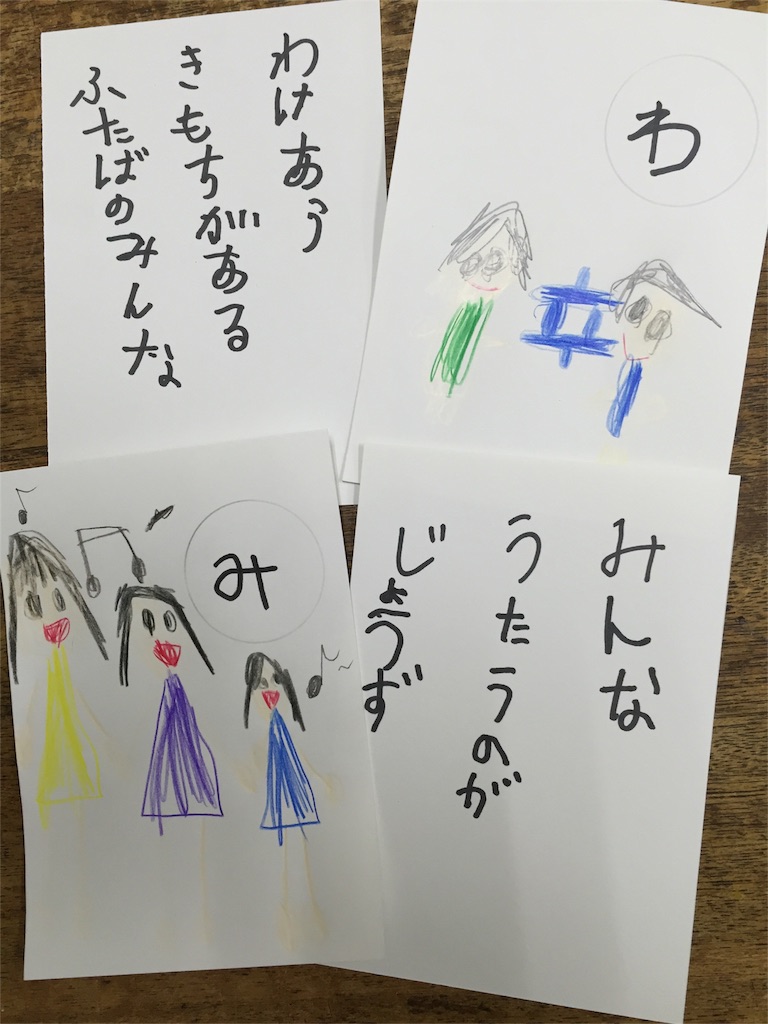 わけあう
きもちがある
ふたばのみんな
わ
み
みんな
うたうのが
じょうず